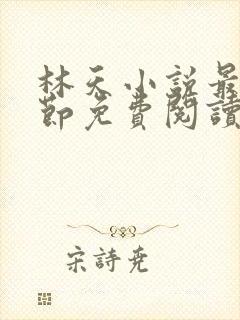 林天小說最
節免費閱讀
宋詩堯